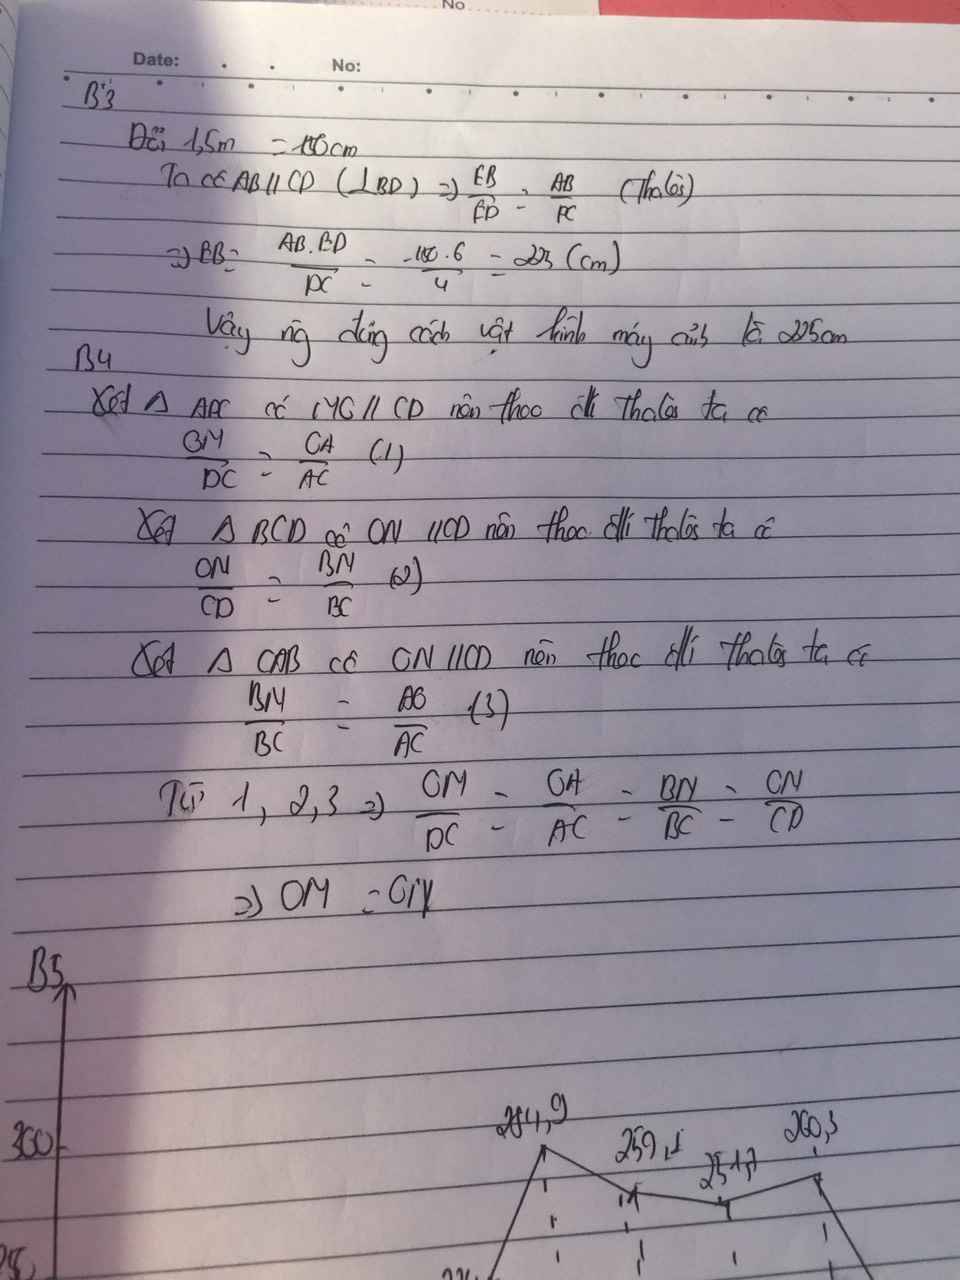 No
Date: No:
B3
Đổi 1,5m = 150cm
Ta có AB // CD (⊥BD) => EB/ED = AB/DC (Thalès)
=> EB = AB.ED/DC = 150.6/4 = 225 (cm)
Vậy ng đứng cách vật kính máy ảnh là 225cm
B4
Xét Δ ADC có MO // CD nên theo đlí Thalès ta có
OM/DC = OA/AC (1)
Xét Δ BCD có ON // CD nên theo đlí thalès ta có
ON/CD = BN/BC (2)
Xét Δ CAB có ON // CD nên theo đlí thalès ta có
BN/BC = AO/AC (3)
Từ 1, 2, 3 => OM/DC = OA/AC = BN/BC = ON/CD
=> OM = ON
B5
300
284,9 259,1 251,7 260,3